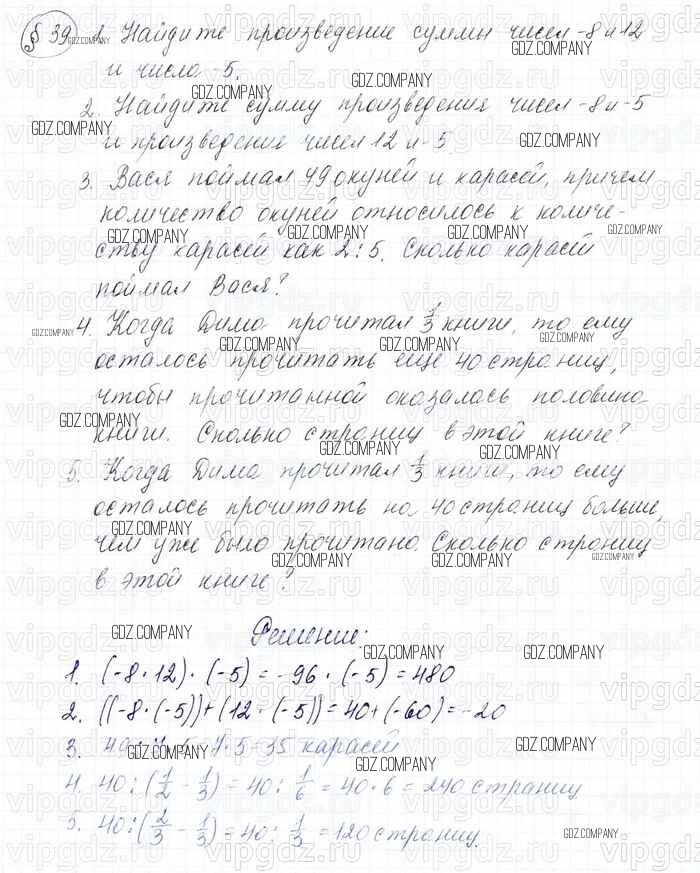 § 39 1. Найдите произведение суммы чисел -8 и 12
и числа -5.
2. Найдите сумму произведения чисел -8 и -5
и произведение чисел 12 и -5
3. Вася поймал 49 окуней и карасей, причем
количество окуней относилось к количе-
ству карасей как 2:5. Сколько карасей
поймал Вася?
4. Когда Дима прочитал 1/3 книги, то ему
осталось прочитать еще 40 страниц,
чтобы прочитанной оказалась половина
книги. Сколько страниц в этой книге?
5. Когда Дима прочитал 1/3 книги, то ему
осталось прочитать на 40 страниц больше,
чем уже было прочитано. Сколько страниц
в этой книге?
Решение:
1. (-8 · 12) · (-5) = -96 · (-5) = 480
2. ((-8 · (-5)) + (12 · (-5)) = 40 + (-60) = -20
3. 49 : 7 · 5 = 7 · 5 = 35 карасей
4. 40 : (1/2 - 1/3) = 40 : 1/6 = 40 · 6 = 240 страниц
5. 40 : (2/3 - 1/3) = 40 : 1/3 = 120 страниц.
GDZ.COMPANY
vipgdz.ru